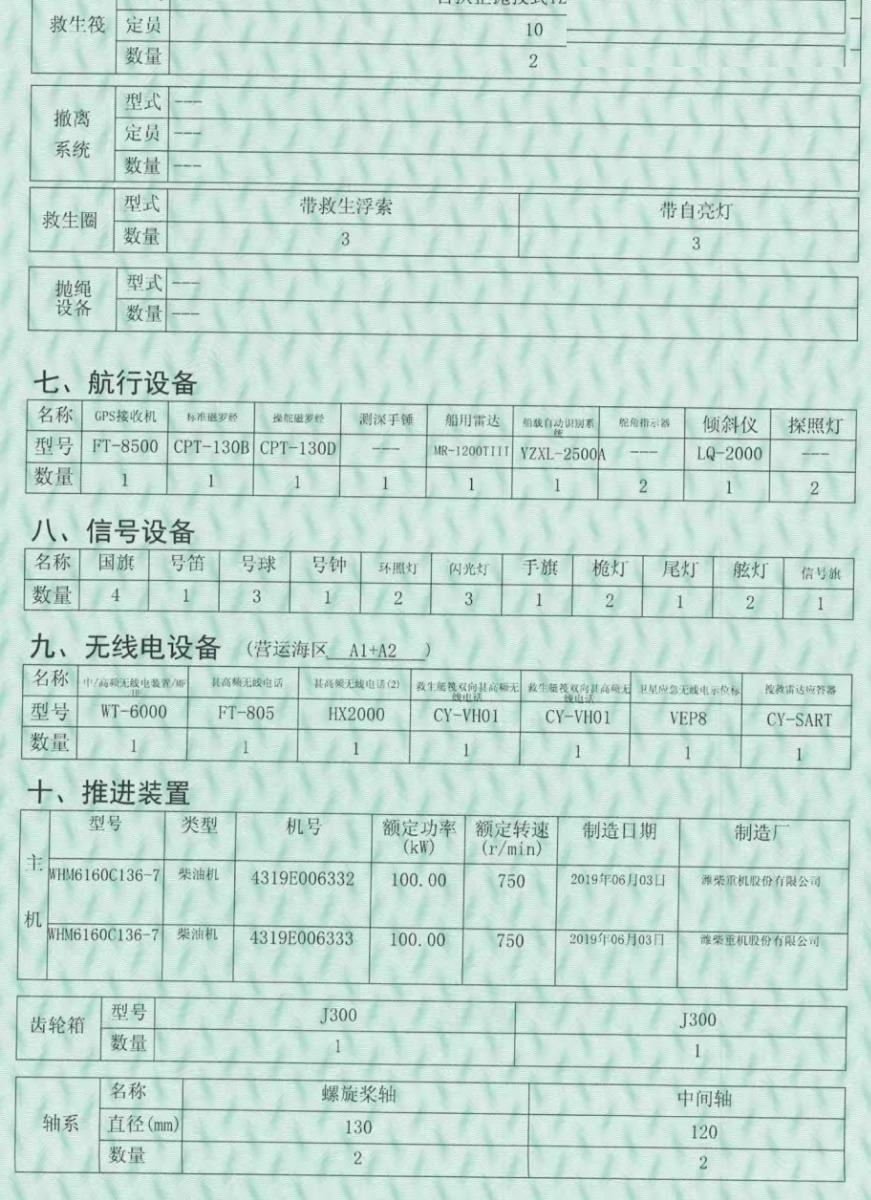 救生筏 定员 10
数量 2
撤离系统 型式 ---
定员 ---
数量 ---
救生圈 型式 带救生浮索 带自亮灯
数量 3 3
抛绳设备 型式 ---
数量 ---
七、航行设备
名称 GPS接收机 标准磁罗经 操舵磁罗经 测深手锤 船用雷达 船载自动识别系统 舵角指示器 倾斜仪 探照灯
型号 FT-8500 CPT-130B CPT-130D --- MR-1200TIII YZXL-2500A --- LQ-2000 ---
数量 1 1 1 1 1 1 2 1 2
八、信号设备
名称 国旗 号笛 号球 号钟 环照灯 闪光灯 手旗 桅灯 尾灯 舷灯 信号旗
数量 4 1 3 1 2 3 1 2 1 2 1
九、无线电设备 (营运海区 A1+A2 )
名称 中/高频无线电装置/MF 甚高频无线电话 甚高频无线电话(2) 救生艇筏双向甚高频无线电话 救生艇筏双向甚高频无线电话 卫星应急无线电示位标 搜救雷达应答器
型号 WT-6000 FT-805 HX2000 CY-VH01 CY-VH01 VEP8 CY-SART
数量 1 1 1 1 1 1 1
十、推进装置
主机 型号 类型 机号 额定功率(kW) 额定转速(r/min) 制造日期 制造厂
WHM6160C136-7 柴油机 4319E006332 100.00 750 2019年06月03日 潍柴重机股份有限公司
WHM6160C136-7 柴油机 4319E006333 100.00 750 2019年06月03日 潍柴重机股份有限公司
齿轮箱 型号 J300 J300
数量 1 1
轴系 名称 螺旋桨轴 中间轴
直径(mm) 130 120
数量 2 2